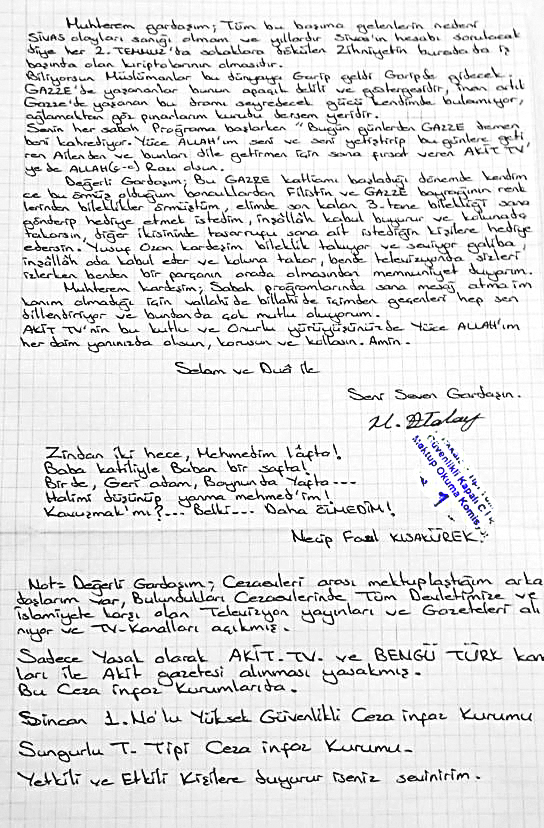 Muhterem gardaşım; Tüm bu başıma gelenlerin nedeni
SİVAS olayları sanığı olmam ve yıllardır Sivas'ın hesabı sorulacak
diye her 2. TEMMUZ'da sokaklara dökülen Zihniyetin burada da iş
başında olan kriptolarının olmasıdır.
Biliyorsun Müslümanlar bu dünyaya Garip geldi Garipde gidecek.
GAZZE'de yaşananlar bunun apaçık delili ve göstergesidir, inan artık
Gazze'de yaşanan bu dramı seyredecek gücü kendimde bulamıyor,
ağlamaktan göz pınarlarım kurudu dersem yeridir.
Senin her sabah Programa başlarken "Bugün günlerden GAZZE demen
beni kahrediyor. Yüce ALLAH'ım seni ve seni yetiştirip bu günlere geti
ren Ailenden ve bunları dile getirmen için sana fırsat veren AKİT TV'
ye de ALLAH (c-c) Razı olsun.
Değerli Gardaşım; Bu GAZZE katliamı başladığı dönemde kendim
ce bu örmüş olduğum boncuklardan Filistin ve GAZZE bayrağının renk
lerinden bileklikler örmüştüm, elimde son kalan 3-tane bilekliği sana
gönderip hediye etmek istedim, inşallâh kabul buyurur ve kolunada
takarsın, diğer ikisininde tasarrufu sana ait istediğin kişilere hediye
edersin. Yusuf Ozan kardeşim bileklik takıyor ve seviyor galiba,
inşallâh oda kabul eder ve koluna takar, bende televizyonda sizleri
izlerken benden bir parçanın orada olmasından memnuniyet duyarım.
Muhterem kardeşim; Sabah programlarında sana mesaj atma im
kanım olmadığı için vallahi de billahi de içimden geçenleri hep sen
dillendiriyor ve bundanda çok mutlu oluyorum.
AKİT TV'nin bu kutlu ve Onurlu yürüyüşünüzde Yüce ALLAH'ım
her daim yanınızda olsun, korusun ve kollasın. Amin.
Selam ve Duâ ile
Seni Seven Gardaşın.
Zindan iki hece, Mehmedim lâfta!
Baba katiliyle Baban bir safta!
Bir de, Geri adam, Boynunda Yafta---
Halimi düşünüp yanma mehmed'im!
Kavuşmak'mı?--- Belki--- Daha ÖLMEDİM!
Necip Fazıl KISAKÜREK.
Güvenlikli Kapalı C
Mektup Okuma Komis
1
Not= Değerli Gardaşım; Cezaevleri arası mektuplaştığım arka
daşlarım var, Bulundukları Cezaevlerinde Tüm Devletimize ve
İslamiyete karşı olan Televizyon yayınları ve Gazeteleri alı
nıyor ve TV-Kanalları açıkmış.
Sadece Yasal olarak AKİT-TV- ve BENGÜ TÜRK kan
ları ile Akit gazetesi alınması yasakmış.
Bu Ceza infaz Kurumlarıda.
Sincan 1.No'lu Yüksek Güvenlikli Ceza infaz Kurumu
Sungurlu T-Tipi Ceza infaz Kurumu-
Yetkili ve Etkili Kişilere duyurur iseniz sevinirim.